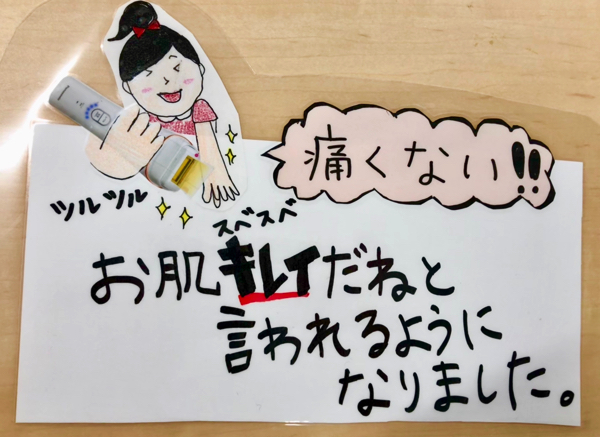 痛くない!!
ツルツル
スベスベ
お肌キレイだねと
言われるように
なりました。